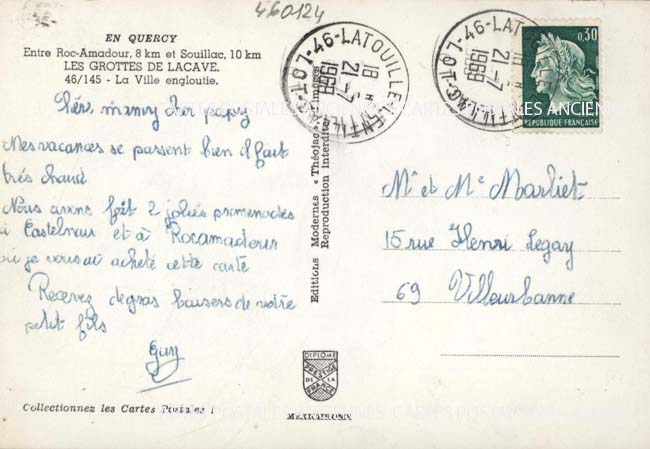 460124
EN QUERCY
Entre Roc-Amadour, 8 km et Souillac, 10 km
LES GROTTES DE LACAVE.
46/145 - La Ville engloutie.
Chère mamy cher papy
Mes vacances se passent bien il fait
très chaud
Nous avons fait 2 jolies promenades
à Castelnau et à Rocamadour
où je vous ai acheté cette carte
Recevez de gros baisers de votre
petit fils
Guy
Collectionnez les Cartes Postales !
Editions Modernes « Théojac »
Reproduction Interdite
DIPLOME
PRESTIGE
DE LA
FRANCE
MEXICHROME
46-LATOUILLE-LENTILLAC LOT
18 H
21-7
1969
46-LATOUILLE-LENTILLAC LOT
21-7
1969
0,30
REPUBLIQUE FRANÇAISE
LES ANCIEN
Mr et Me Marliet
15 rue Henri Legay
69 Villeurbanne